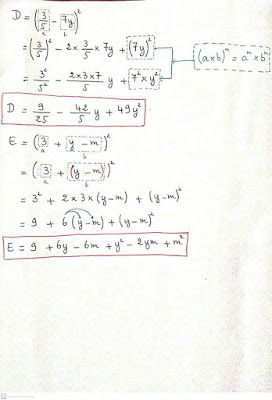 D = (3/5 - 7y)²
a b
= (3/5)² - 2 × 3/5 × 7y + (7y)²
(a×b)ⁿ = aⁿ × bⁿ
= 3²/5² - 2×3×7/5 y + 7² × y²
D = 9/25 - 42/5 y + 49y²
E = (3 + y - m)²
a b
= (3 + (y - m))²
a b
= 3² + 2 × 3 × (y - m) + (y - m)²
= 9 + 6(y - m) + (y - m)²
E = 9 + 6y - 6m + y² - 2ym + m²